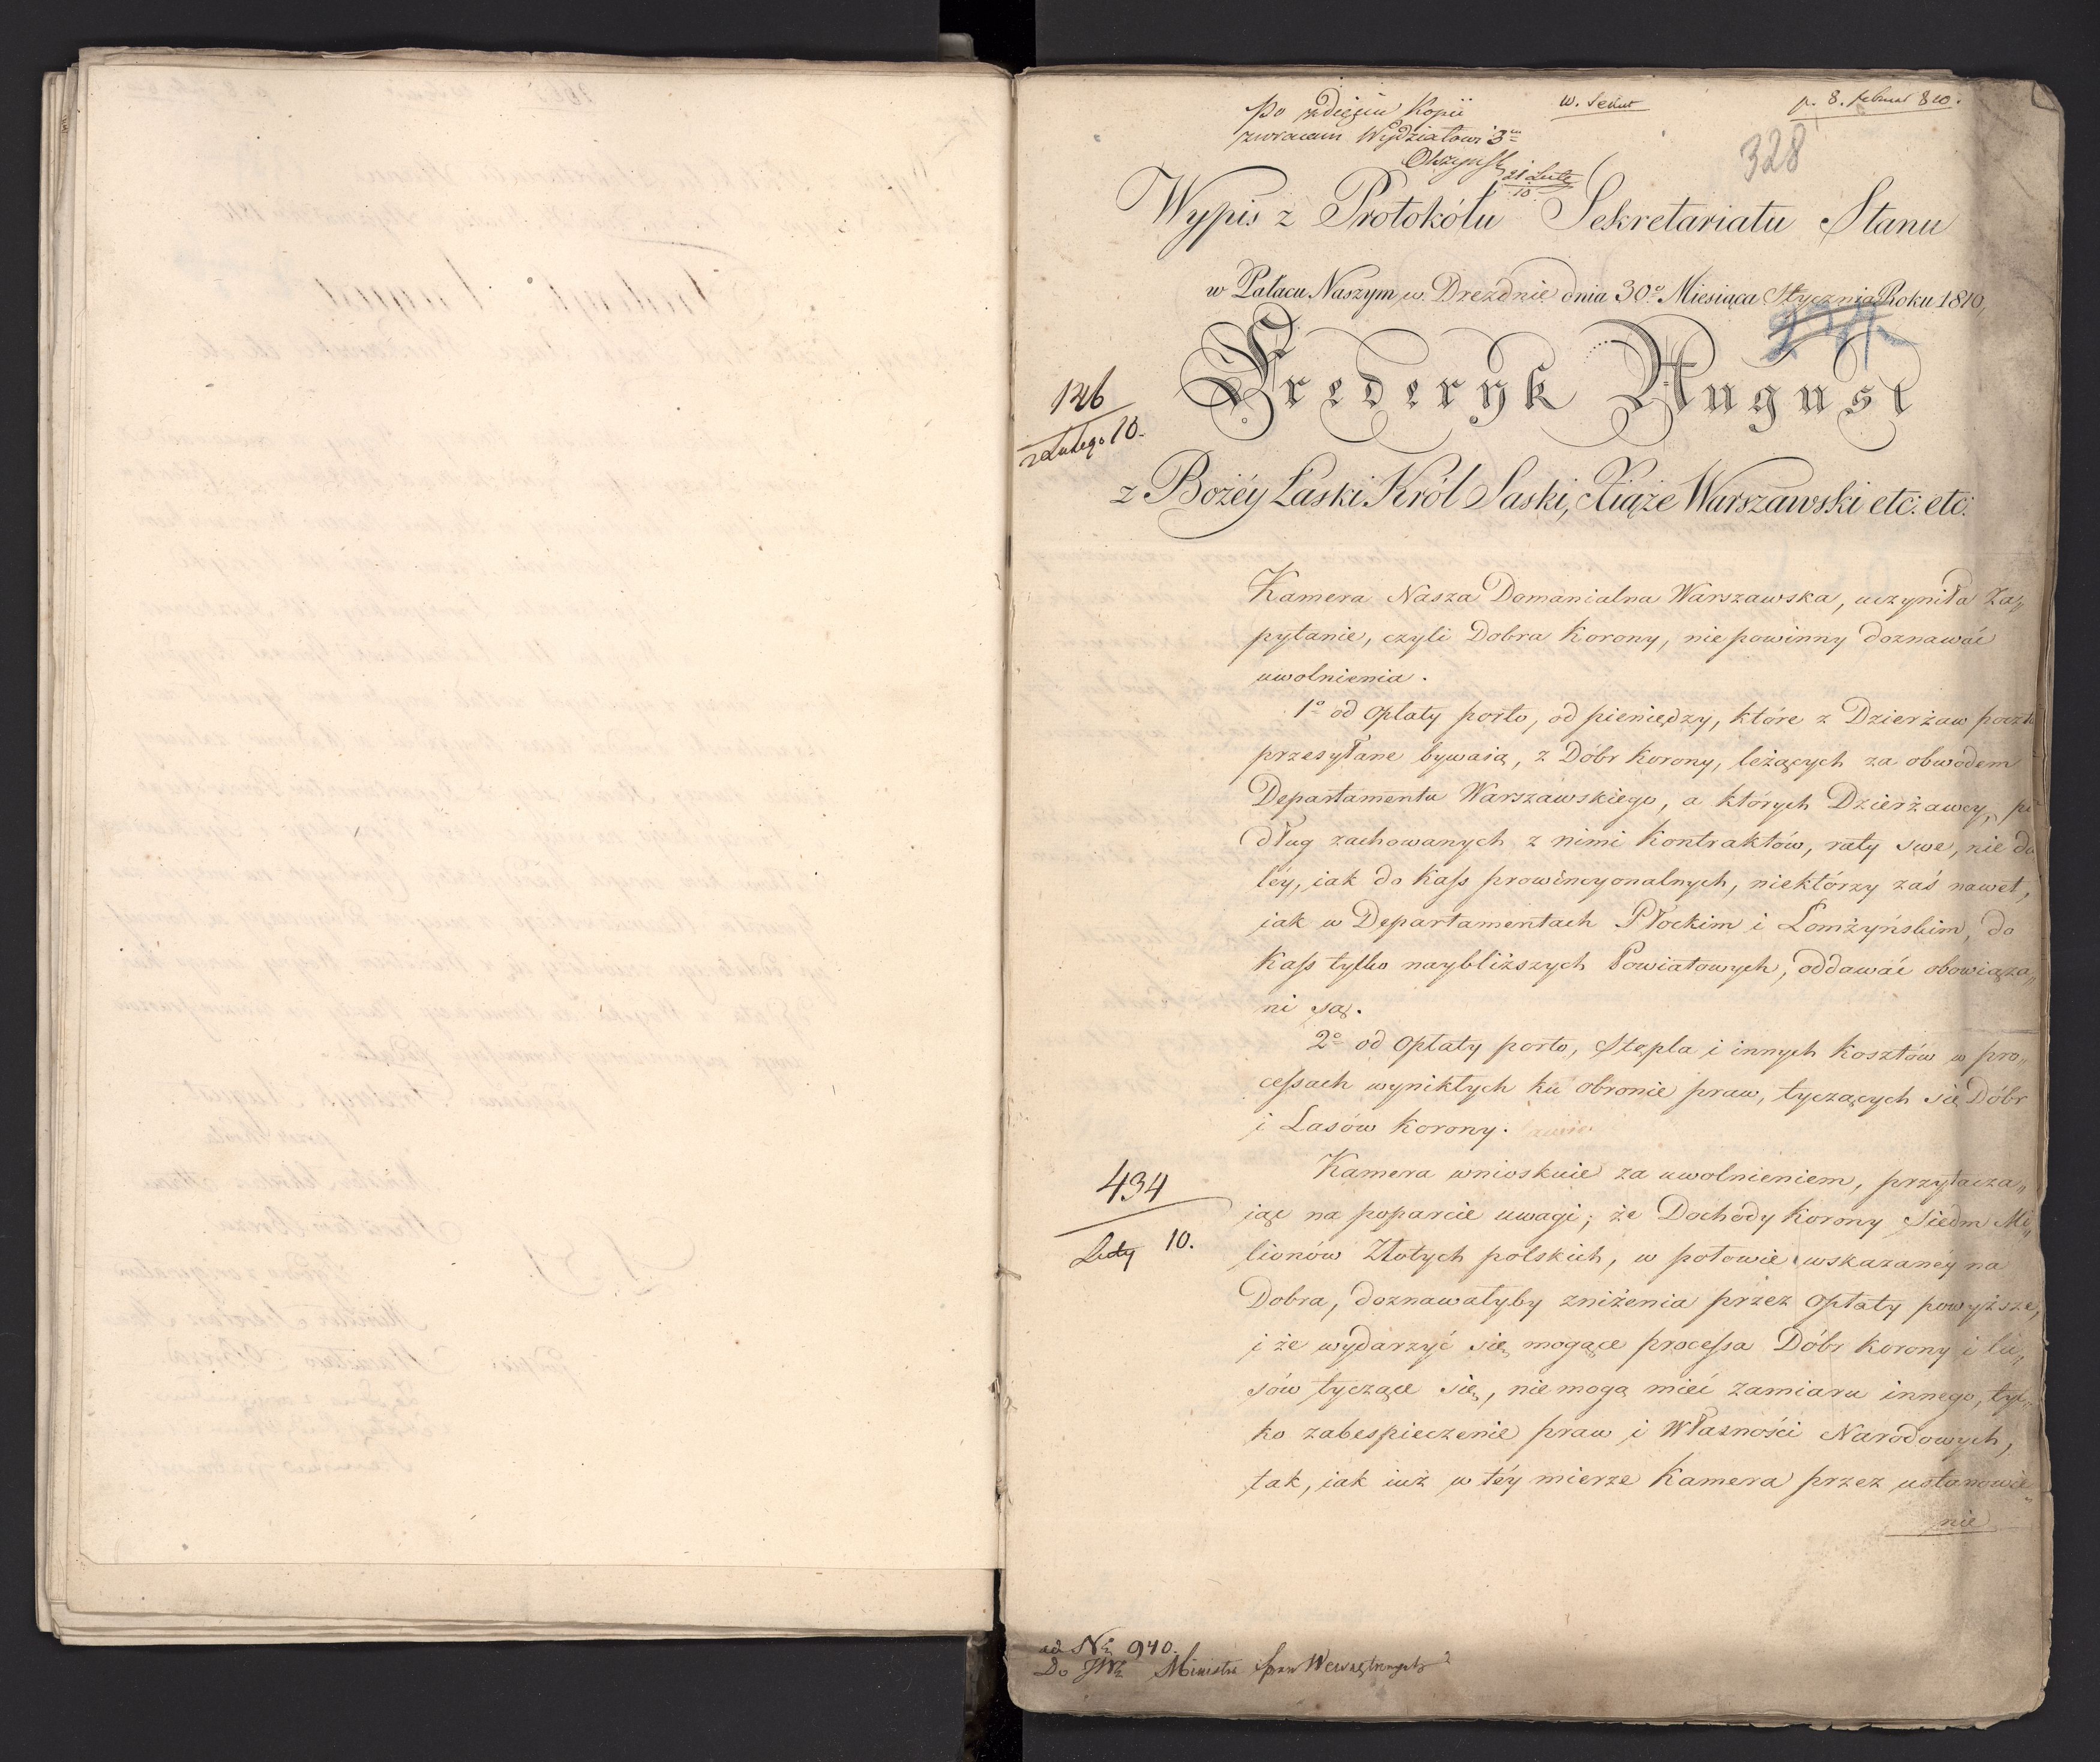 po zdjęciu Kopii
zwracam Wydziałowi 3
21 Lute
10
p. 8. februar 810.
328
Wypis z Protokółu Sekretariatu Stanu
w Pałacu Naszym w Dreznie dnia 30º Miesiąca Stycznia Roku 1810
Frederyk August
126
Lutego 10.
z Bożéy Łaski Król Saski, Xiąże Warszawski etc: etc:
Kamera Nasza Domanialna Warszawska, uczyniła Za„
pytanie, czyli Dobra Korony, nie powinny doznawać
uwolnienia.
1º od Opłaty porto, od pieniędzy, które z Dzierżaw poczt
przesyłane bywaią, z Dóbr Korony, leżących za obwodem
Departamentu Warszawskiego, a których Dzierżawcy, po
dług zachowanych z nimi Kontraktów, raty swe, nie da
léy, iak do Kass prowincyonalnych, niektórzy zaś nawet,
iak w Departamentach Płockim i Łomżyńskim, do
Kass tylko naybliższych Powiatowych, oddawać obowiąza„
ni są.
2º od Opłaty porto, Stępla i innych Kosztów w pro„
cessach wynikłych ku obronie praw, tyczących się Dóbr
i Lasów Korony.
434
Luty 10.
Kamera wnioskuie za uwolnieniem, przytacza„
iąc na poparcie uwagi; że Dochody Korony Siedm Mi„
lionów Złotych polskich, w połowie wskazanéy na
Dobra, doznawałyby zniżenia przez Opłaty powyższe,
i że wydarzyć się mogące processa Dóbr Korony i la„
sów tyczące się, nie mogą mieć zamiaru innego, tyl„
ko zabespieczenie praw i Własności Narodowych,
tak, iak iuż w téy mierze Kamera przez ustanowie„
nie
ad Nr 940.
Do JW Ministra Spraw Wewnętrznych